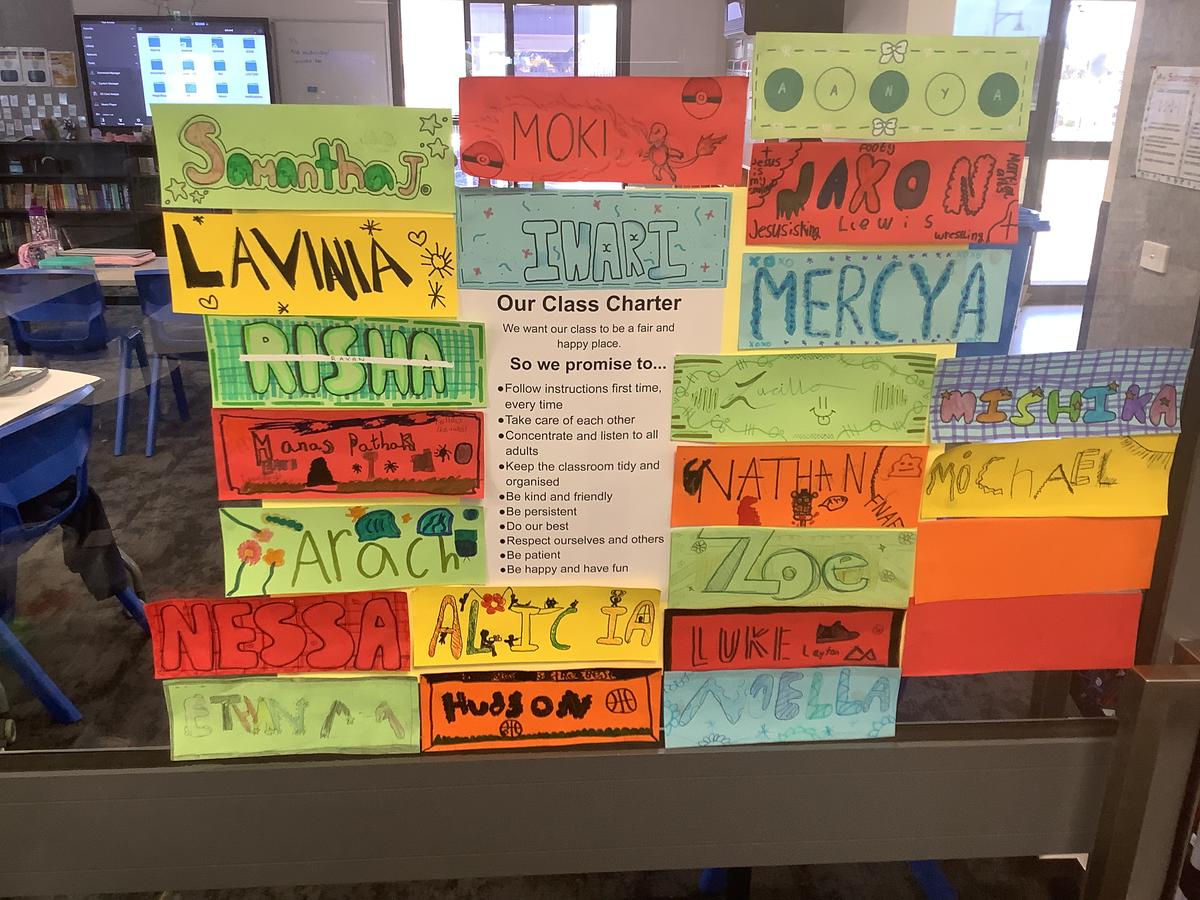 Samantha J.
MOKI
A A N Y A
Jesus is my
FOOTY
JAXON
Lewis
Jesus is king
wrestling
LAVINIA
IWARI
MERCY.A
Our Class Charter
We want our class to be a fair and
happy place.
So we promise to...
•Follow instructions first time,
every time
•Take care of each other
•Concentrate and listen to all
adults
•Keep the classroom tidy and
organised
•Be kind and friendly
•Be persistent
•Do our best
•Respect ourselves and others
•Be patient
•Be happy and have fun
RISHA
Lucilla
MISHIKA
Manas Pathak
NATHAN
FNAF
MiCHAEL
Arach
Zoe
NESSA
ALICIA
LUKE
Layton
ETHAN
HUDSON